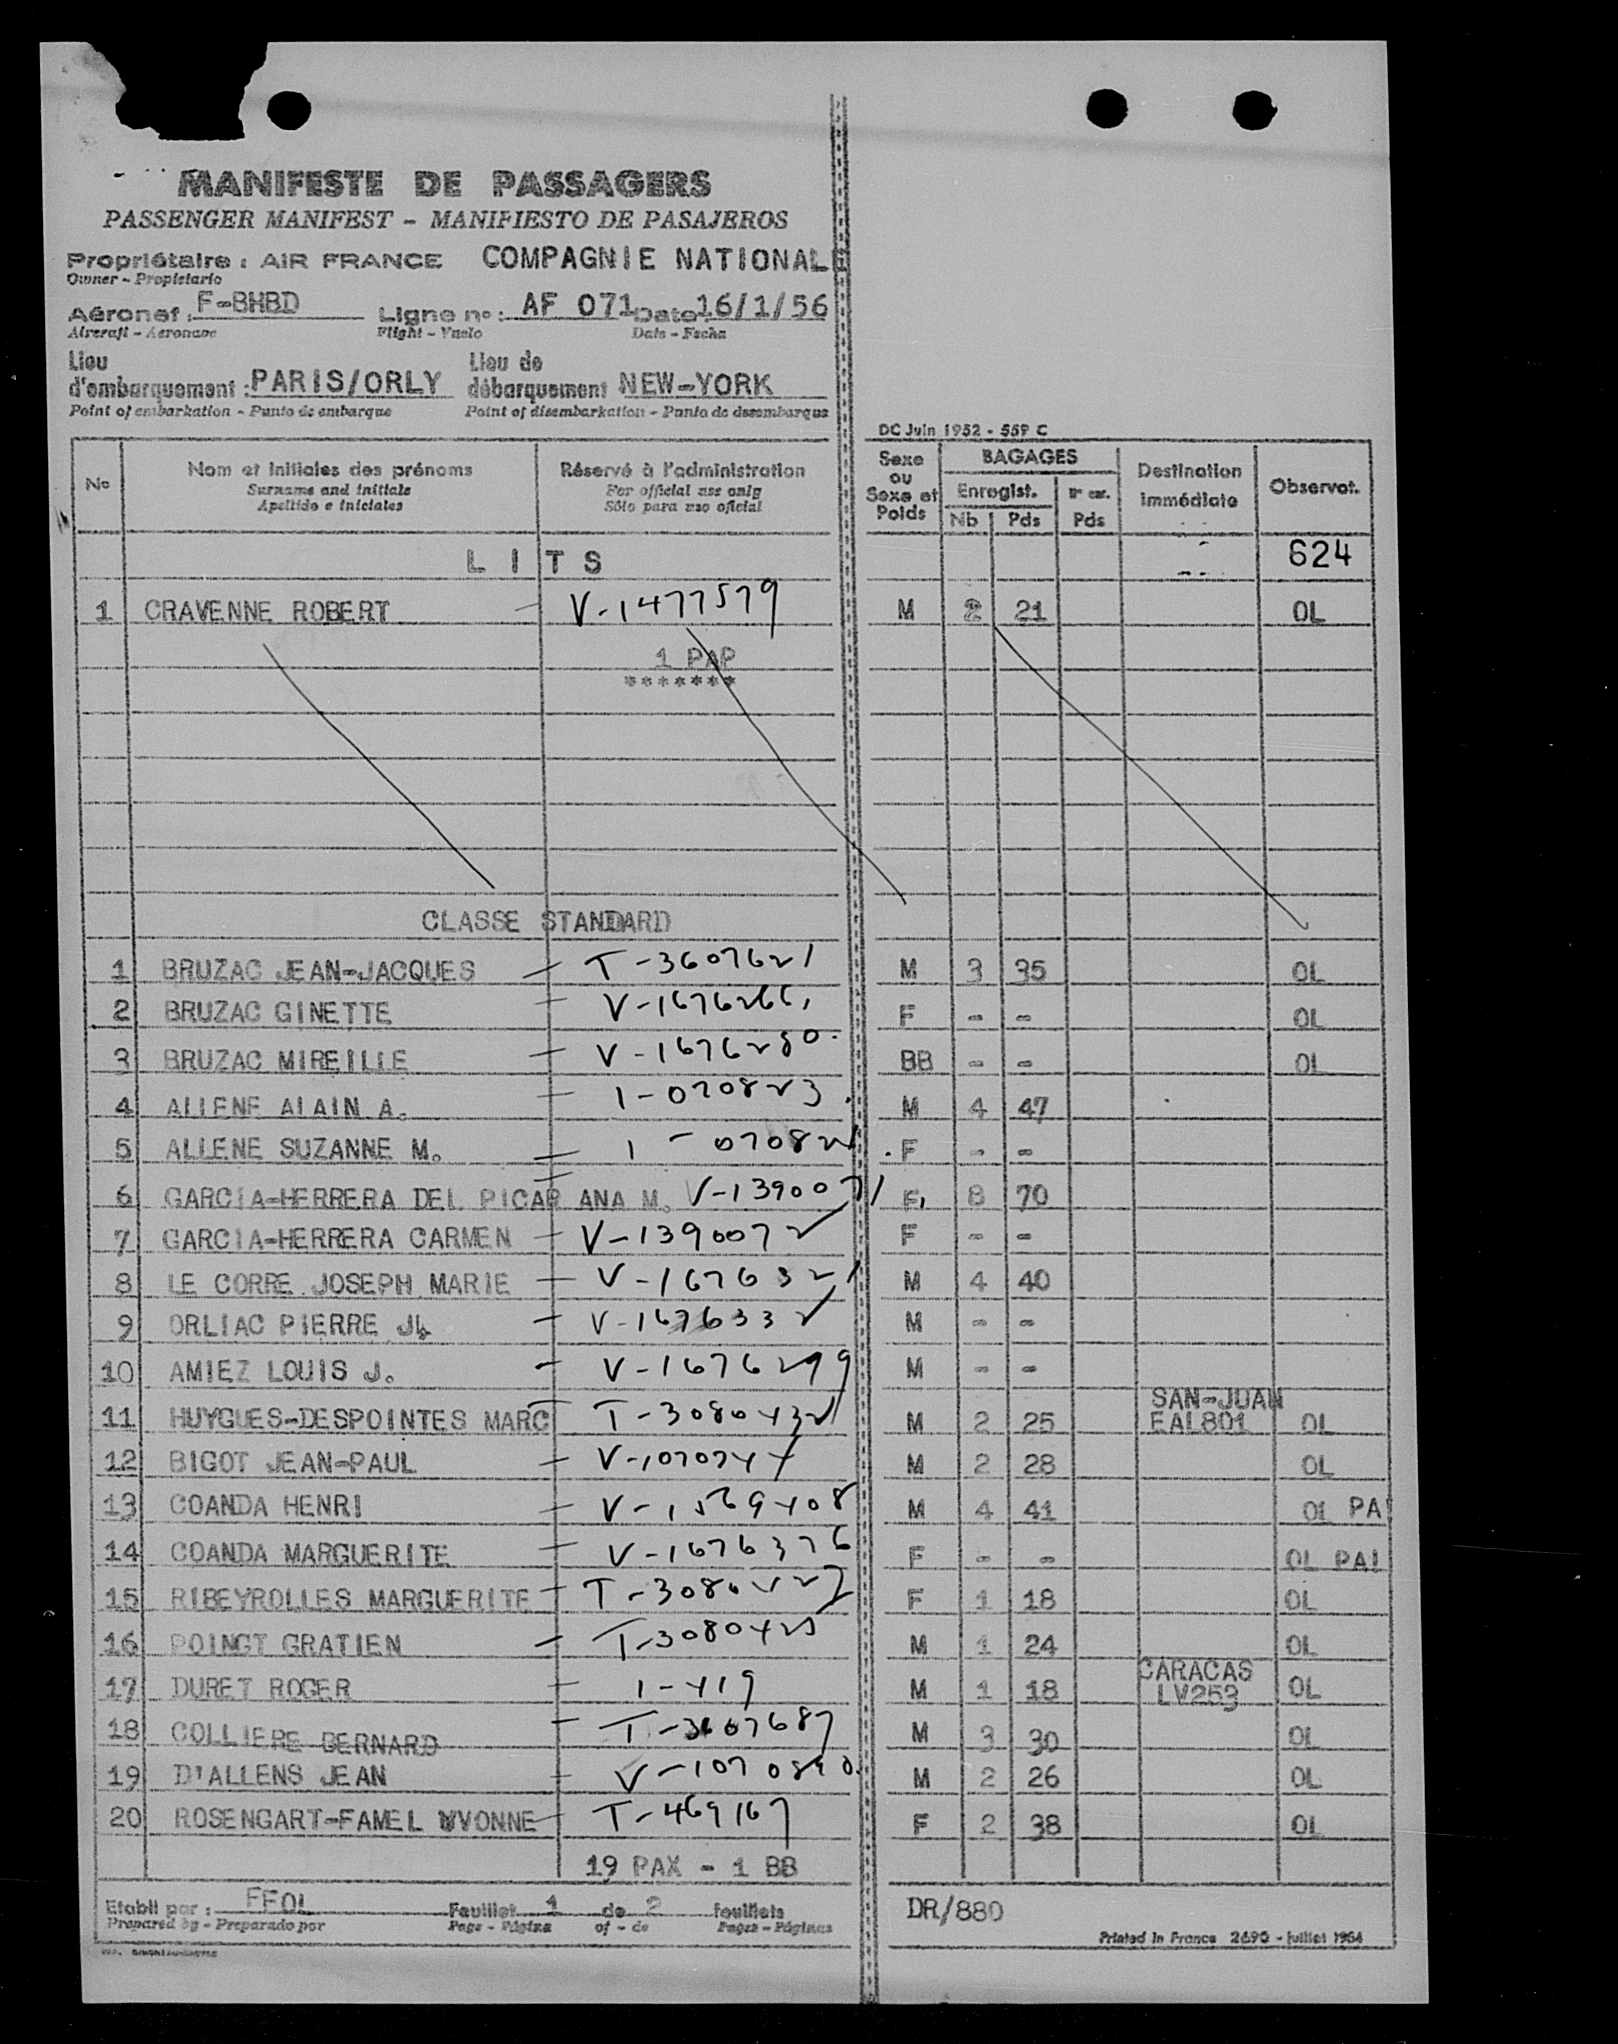 MANIFESTE DE PASSAGERS
PASSENGER MANIFEST - MANIFIESTO DE PASAJEROS
Propriétaire : AIR FRANCE COMPAGNIE NATIONALE
Owner - Propietario
Aéronef : F-BHBD Ligne nº : AF 071 Date 16/1/56
Aircraft - Aeronave Flight - Vuelo Date - Fecha
Lieu d'embarquement : PARIS/ORLY Lieu de débarquement NEW-YORK
Point of embarkation - Punto de embarque Point of disembarkation - Punto de desembarque
DC Juin 1952 - 559 C
No Nom et initiales des prénoms Réservé à l'administration Sexe ou Sexe et Poids BAGAGES Destination immédiate Observat.
Surname and initials For official use only Enregist. Pds
Apellido e iniciales Sólo para uso oficial Nb Pds
L I T S 624
1 CRAVENNE ROBERT - V-1477579 M 2 21 OL
1 PAP
*******
CLASSE STANDARD
1 BRUZAC JEAN-JACQUES - T-3607621 M 3 35 OL
2 BRUZAC GINETTE - V-1676266 F - - OL
3 BRUZAC MIREILLE - V-1676280 BB - - OL
4 ALLENE ALAIN A. - 1-070823 M 4 47
5 ALLENE SUZANNE M. - 1-07082 F - -
6 GARCIA-HERRERA DEL PICAR ANA M. V-1390071 F 8 70
7 GARCIA-HERRERA CARMEN - V-1390072 F - -
8 LE CORRE JOSEPH MARIE - V-1676321 M 4 40
9 ORLIAC PIERRE J. - V-1676332 M - -
10 AMIEZ LOUIS J. - V-1676299 M - -
11 HUYGUES-DESPOINTES MARC T-3080432 M 2 25 SAN-JUAN EAL801 OL
12 BIGOT JEAN-PAUL - V-1070744 M 2 28 OL
13 COANDA HENRI - V-1569408 M 4 41 OL PA
14 COANDA MARGUERITE - V-1676376 F - - OL PA
15 RIBEYROLLES MARGUERITE - T-3080427 F 1 18 OL
16 POINGT GRATIEN - T-3080425 M 1 24 OL
17 DURET ROGER - 1-419 M 1 18 CARACAS LV253 OL
18 COLLIERE BERNARD - T-3607687 M 3 30 OL
19 D'ALLENS JEAN - V-1070890 M 2 26 OL
20 ROSENGART-FAMEL YVONNE - T-469167 F 2 38 OL
19 PAX - 1 BB
Etabli par : FFOL Feuillet 1 de 2 feuillets DR/880
Prepared by - Preparado por Page - Página of - de Pages - Páginas
Printed in France 2690 - Juillet 1954